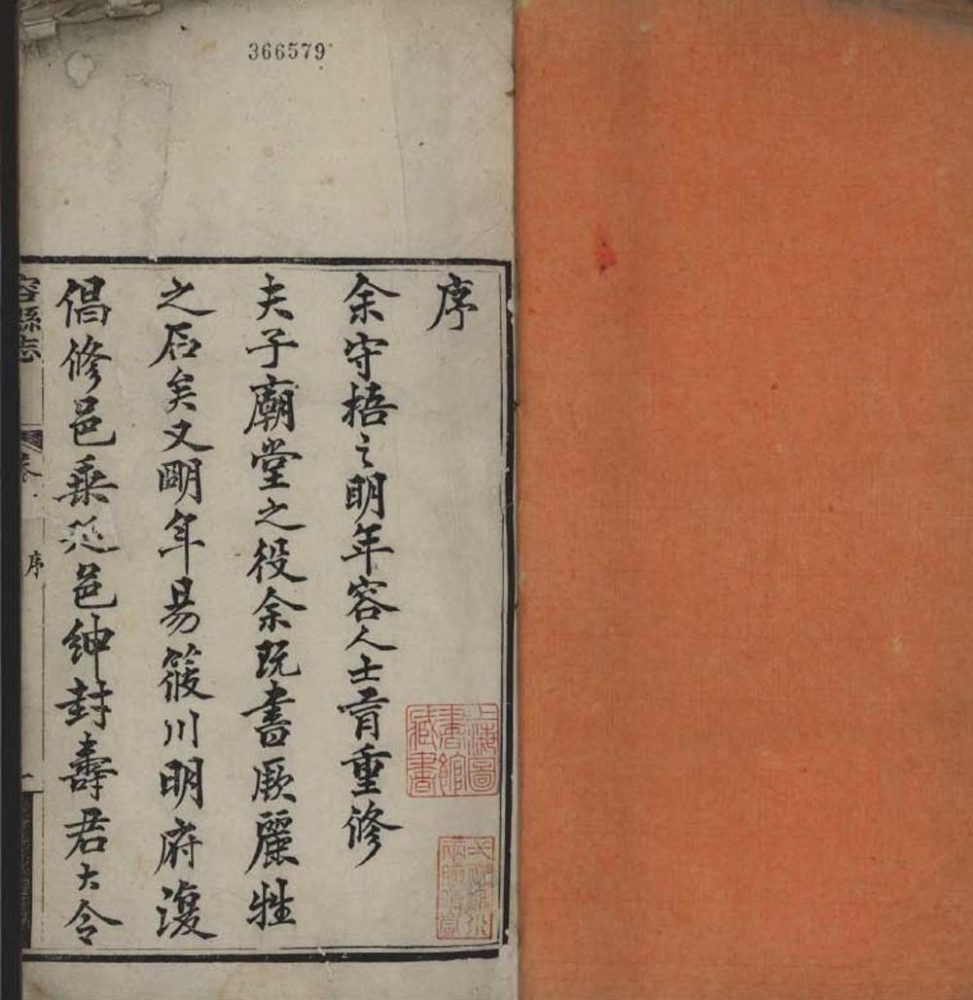 366579
序
余守梧之明年容人士胥重修
夫子廟堂之役余既書厥麗牲
之后矣又明年易筱川明府復
倡修邑乘延邑紳封壽君大令
容縣志
序
上海圖書館藏書